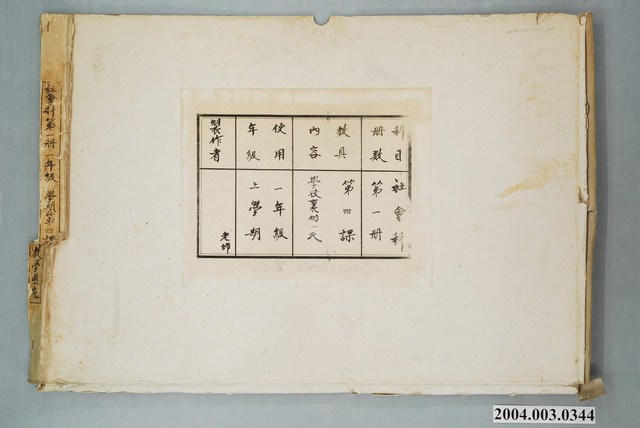 科目 社會科
冊數 第一冊
教具 第四課
內容 學校裏的一天
使用 一年級
年級 上學期
製作者 老師
社會科第一冊 一年級 學期 第四課
2004.003.0344